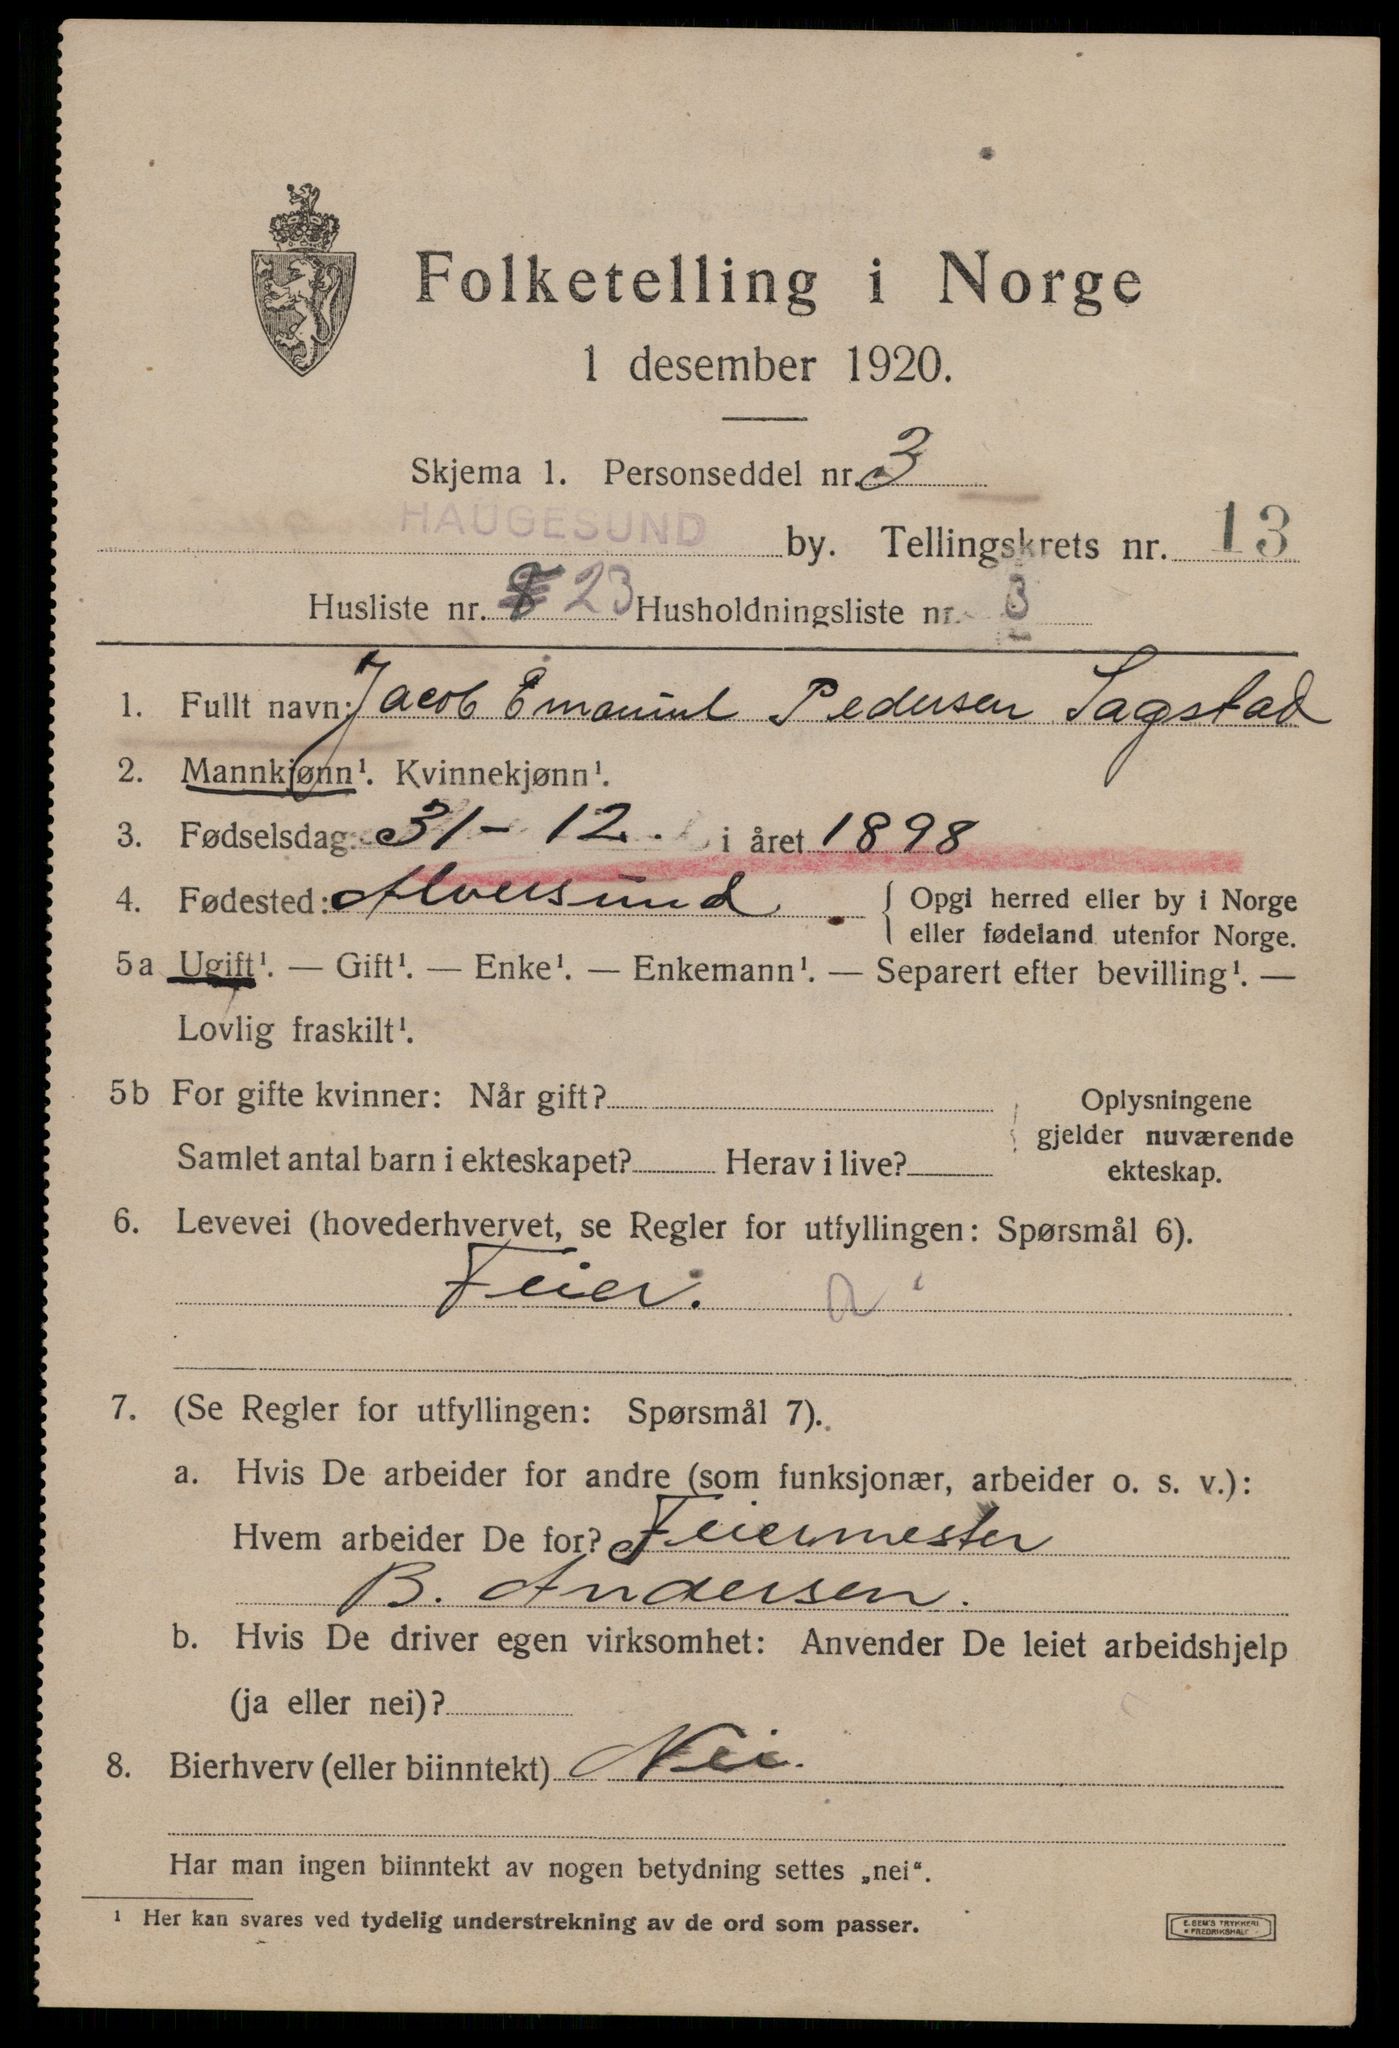 Folketelling i Norge
1 desember 1920.
Skjema 1. Personseddel nr. 3
HAUGESUND by. Tellingskrets nr. 13
Husliste nr. 23 Husholdningsliste nr. 3
1. Fullt navn: Jacob Emanuel Pedersen Sagstad
2. Mannkjønn¹. Kvinnekjønn¹.
3. Fødselsdag: 31 - 12. i året 1898
4. Fødested: Alversund { Opgi herred eller by i Norge
eller fødeland utenfor Norge.
5a Ugift¹. — Gift¹. — Enke¹. — Enkemann¹. — Separert efter bevilling¹. —
Lovlig fraskilt¹.
5b For gifte kvinner: Når gift? Oplysningene
gjelder nuværende
Samlet antal barn i ekteskapet? Herav i live? ekteskap.
6. Levevei (hovederhvervet, se Regler for utfyllingen: Spørsmål 6).
Feier.
7. (Se Regler for utfyllingen: Spørsmål 7).
a. Hvis De arbeider for andre (som funksjonær, arbeider o. s. v.):
Hvem arbeider De for? Feiermester
B. Andersen.
b. Hvis De driver egen virksomhet: Anvender De leiet arbeidshjelp
(ja eller nei)?
8. Bierhverv (eller biinntekt) Nei.
Har man ingen biinntekt av nogen betydning settes „nei“.
¹ Her kan svares ved tydelig understrekning av de ord som passer.
E. SEM'S TRYKKERI
FREDRIKSHALD